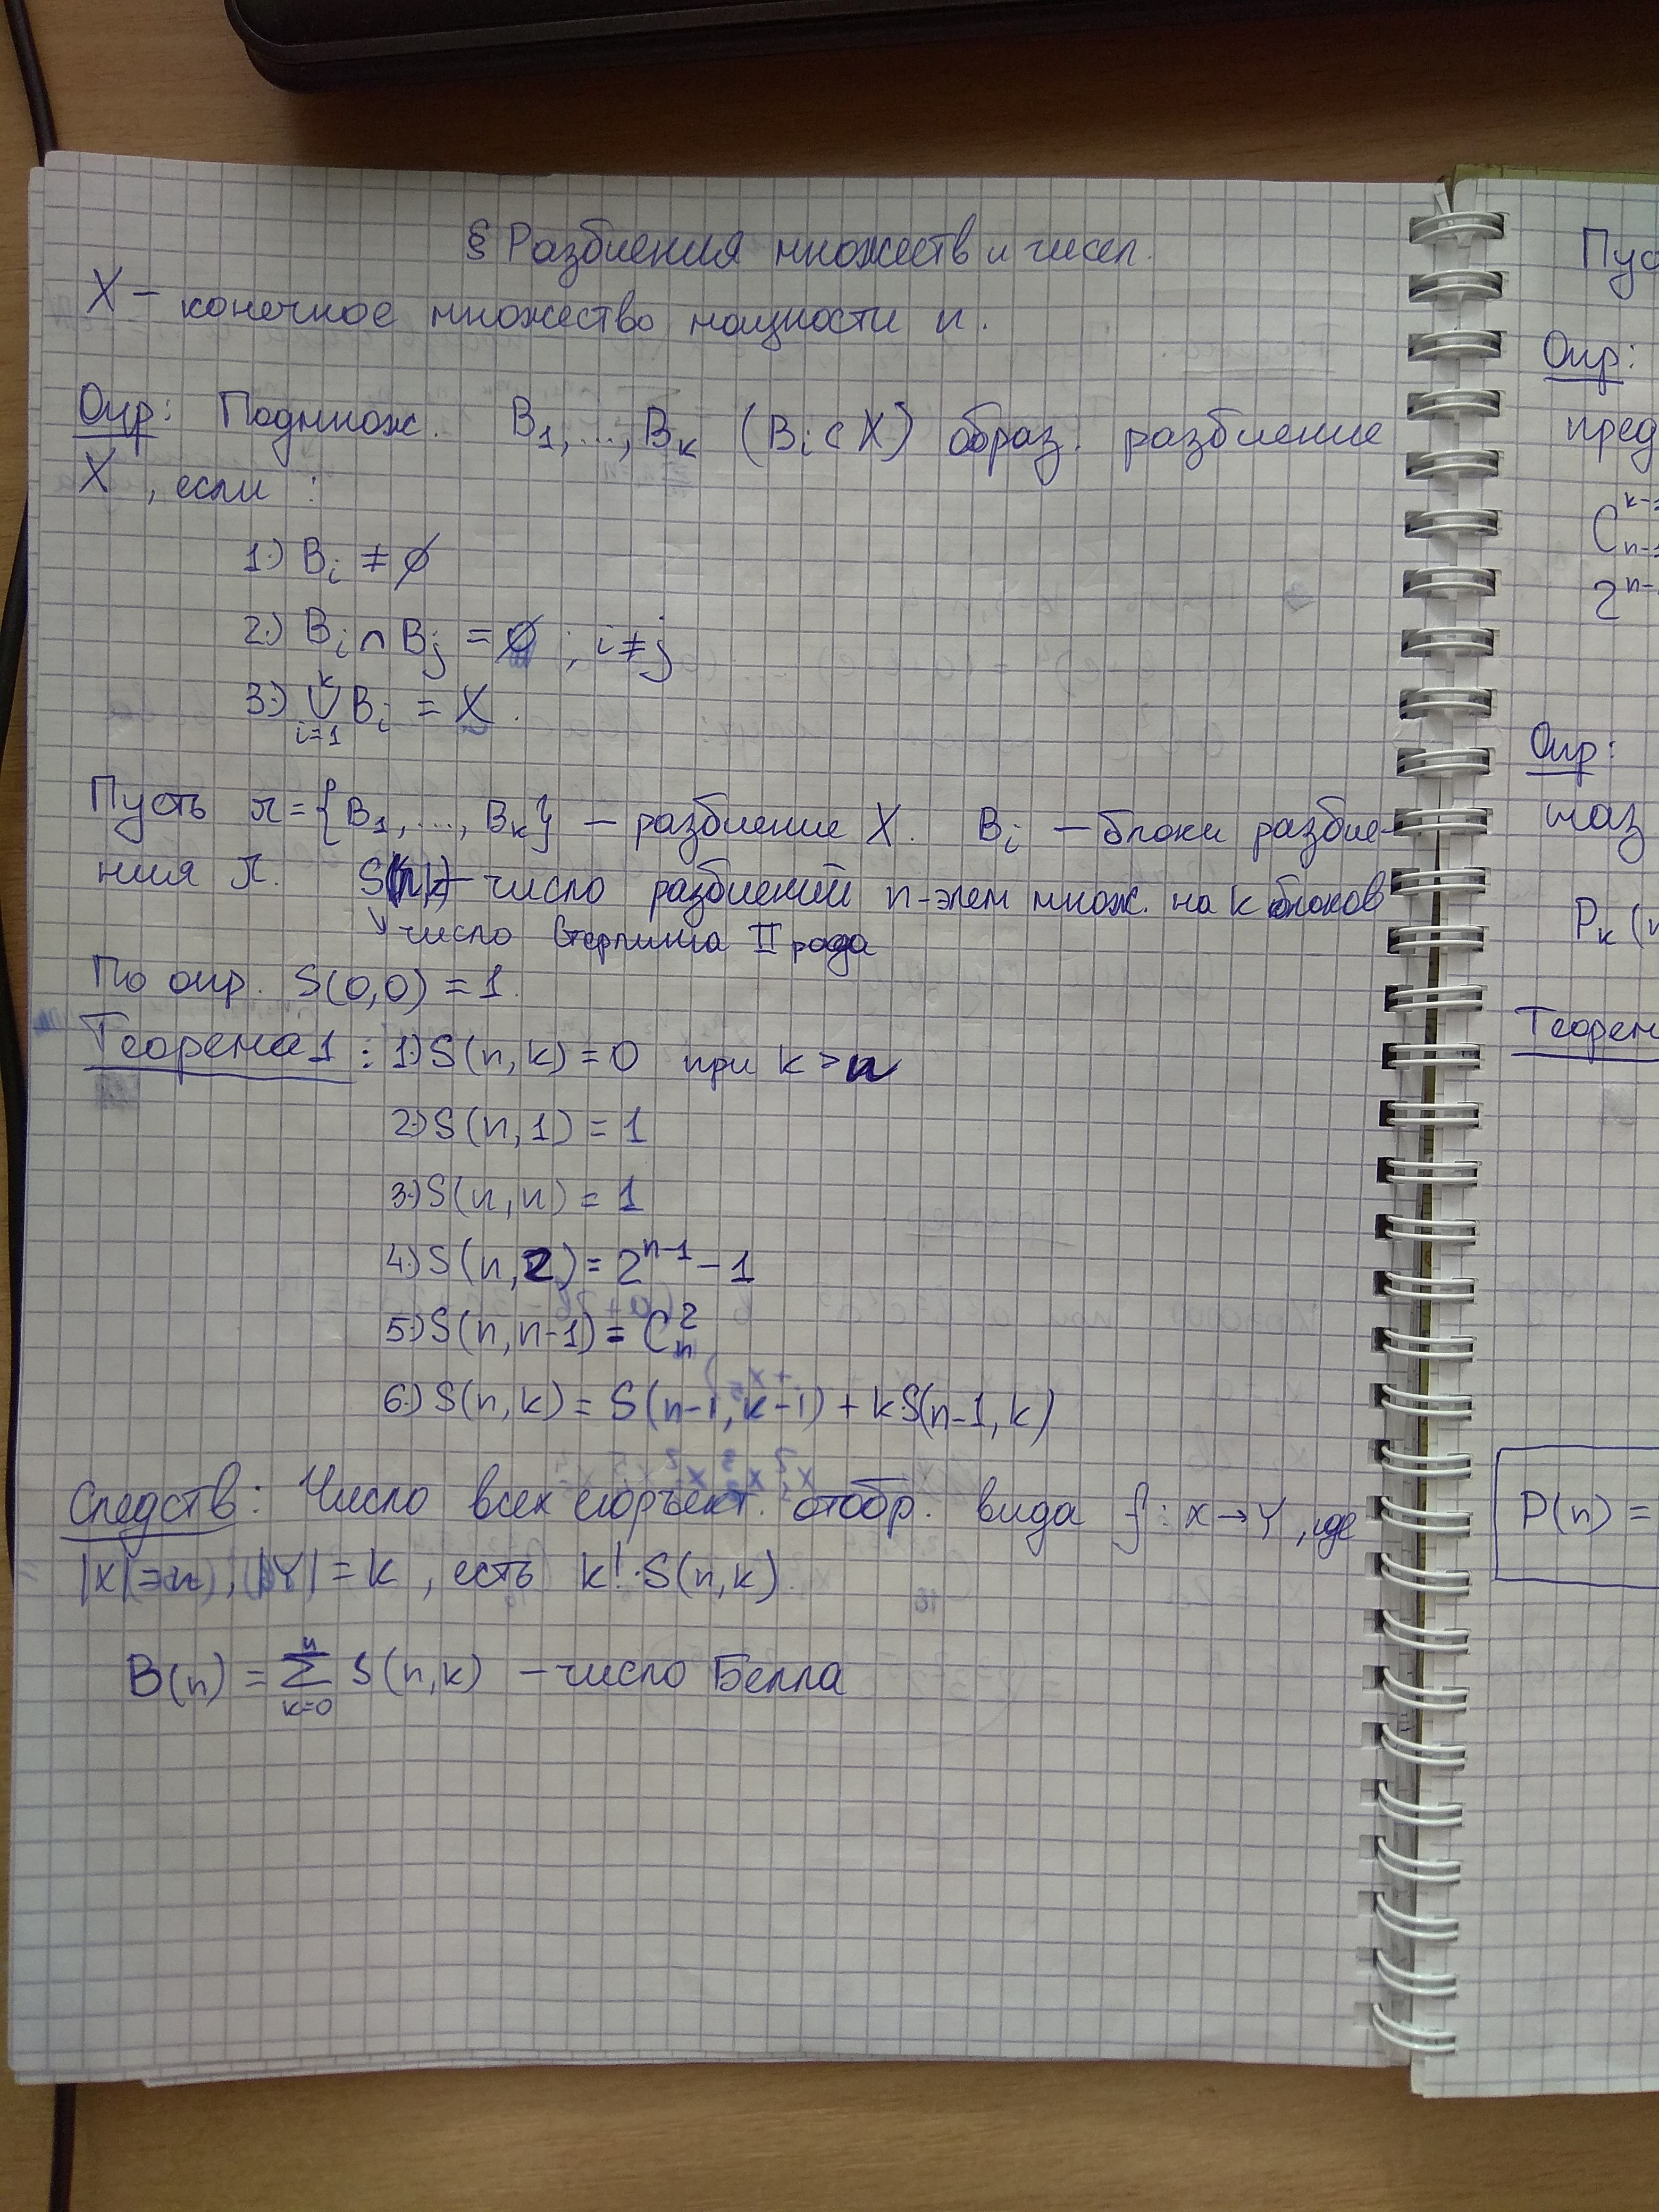 § Разбиения множеств и чисел.
X – конечное множество мощности n.
Опр: Подмнож. B₁,...,Bₖ (Bᵢ ⊂ X) образ. разбиение
X, если:
1.) Bᵢ ≠ ∅
2.) Bᵢ ∩ Bⱼ = ∅ ; i ≠ j
3.) ⋃ᵢ₌₁ᵏ Bᵢ = X.
Пусть π = {B₁,...,Bₖ} – разбиение X. Bᵢ – блоки разбие-
ния π. S(n,k) – число разбиений n-элем множ. на k блоков
↘ число Стерлинга II рода
По опр. S(0,0) = 1.
Теорема 1: 1.) S(n,k) = 0 при k > n
2.) S(n,1) = 1
3.) S(n,n) = 1
4.) S(n,2) = 2ⁿ⁻¹ – 1
5.) S(n,n-1) = Cₙ²
6.) S(n,k) = S(n-1,k-1) + k·S(n-1,k)
Следств: Число всех сюръект. отобр. вида f: X → Y, где
|X| = n, |Y| = k, есть k!·S(n,k).
B(n) = ∑ₖ₌₀ⁿ S(n,k) – число Белла
Пус
Опр:
пред
Cₙ₋₁ᵏ⁻
2ⁿ⁻
Опр:
наз
Pₖ(n
Теорем
P(n) =